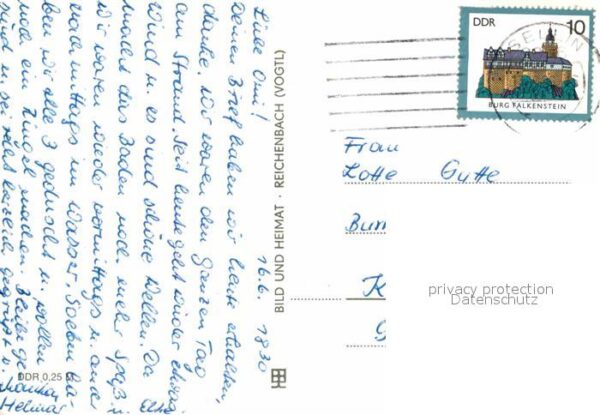 16.6. 1830
Liebe Omi!
Deinen Brief haben wir heute erhalten,
danke. Wir waren den ganzen Tag
am Strand. Seit heute geht wieder etwas
Wind u. es sind schöne Wellen. Da
macht das Baden noch mehr Spaß.
Wir waren wieder vormittags u. auch
nachmittags im Wasser. Soeben ha-
ben wir alle 3 geduscht u. wollen
noch ein
machen. Bleibe ge-
sund u. sei
herzlich gegrüßt v.
Elke
Helmar
DDR 0,25 M
BILD UND HEIMAT · REICHENBACH (VOGTL)
DDR 10
BURG FALKENSTEIN
SELLIN
Frau
Lotte Gutte
privacy protection
Datenschutz